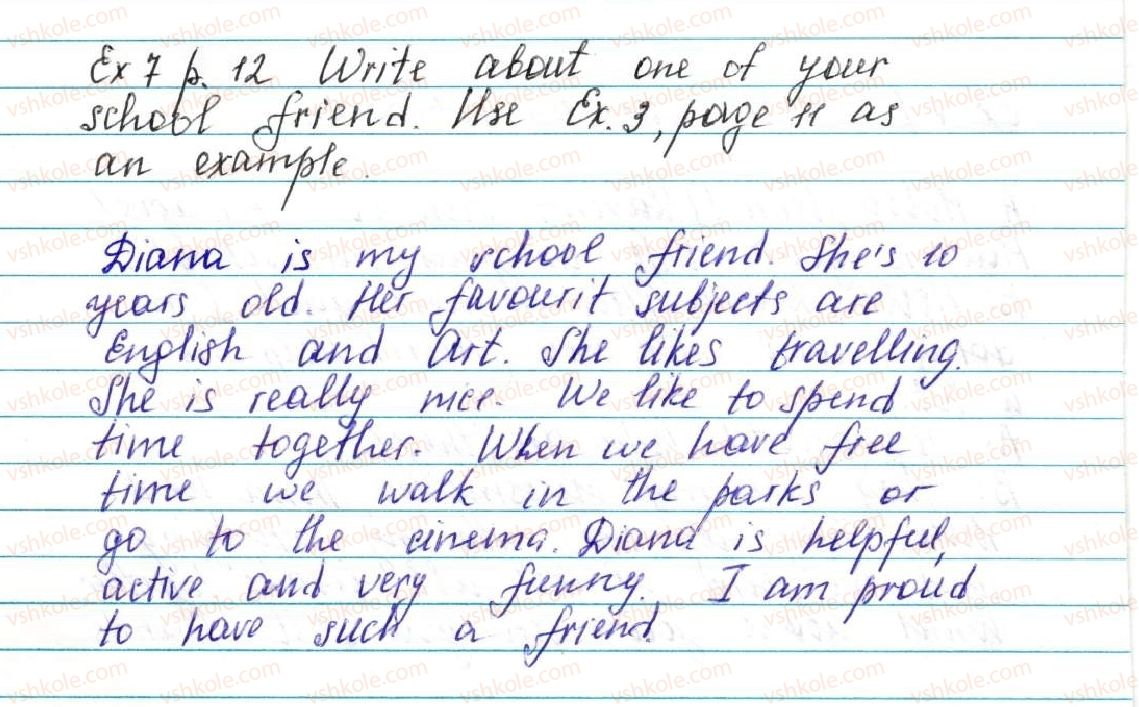 Ex 7 p. 12 Write about one of your
school friend. Use Ex. 3, page 11 as
an example.
Diana is my school friend. She's 10
years old. Her favourit subjects are
English and Art. She likes travelling.
She is really nice. We like to spend
time together. When we have free
time we walk in the parks or
go to the cinema. Diana is helpful,
active and very funny. I am proud
to have such a friend.